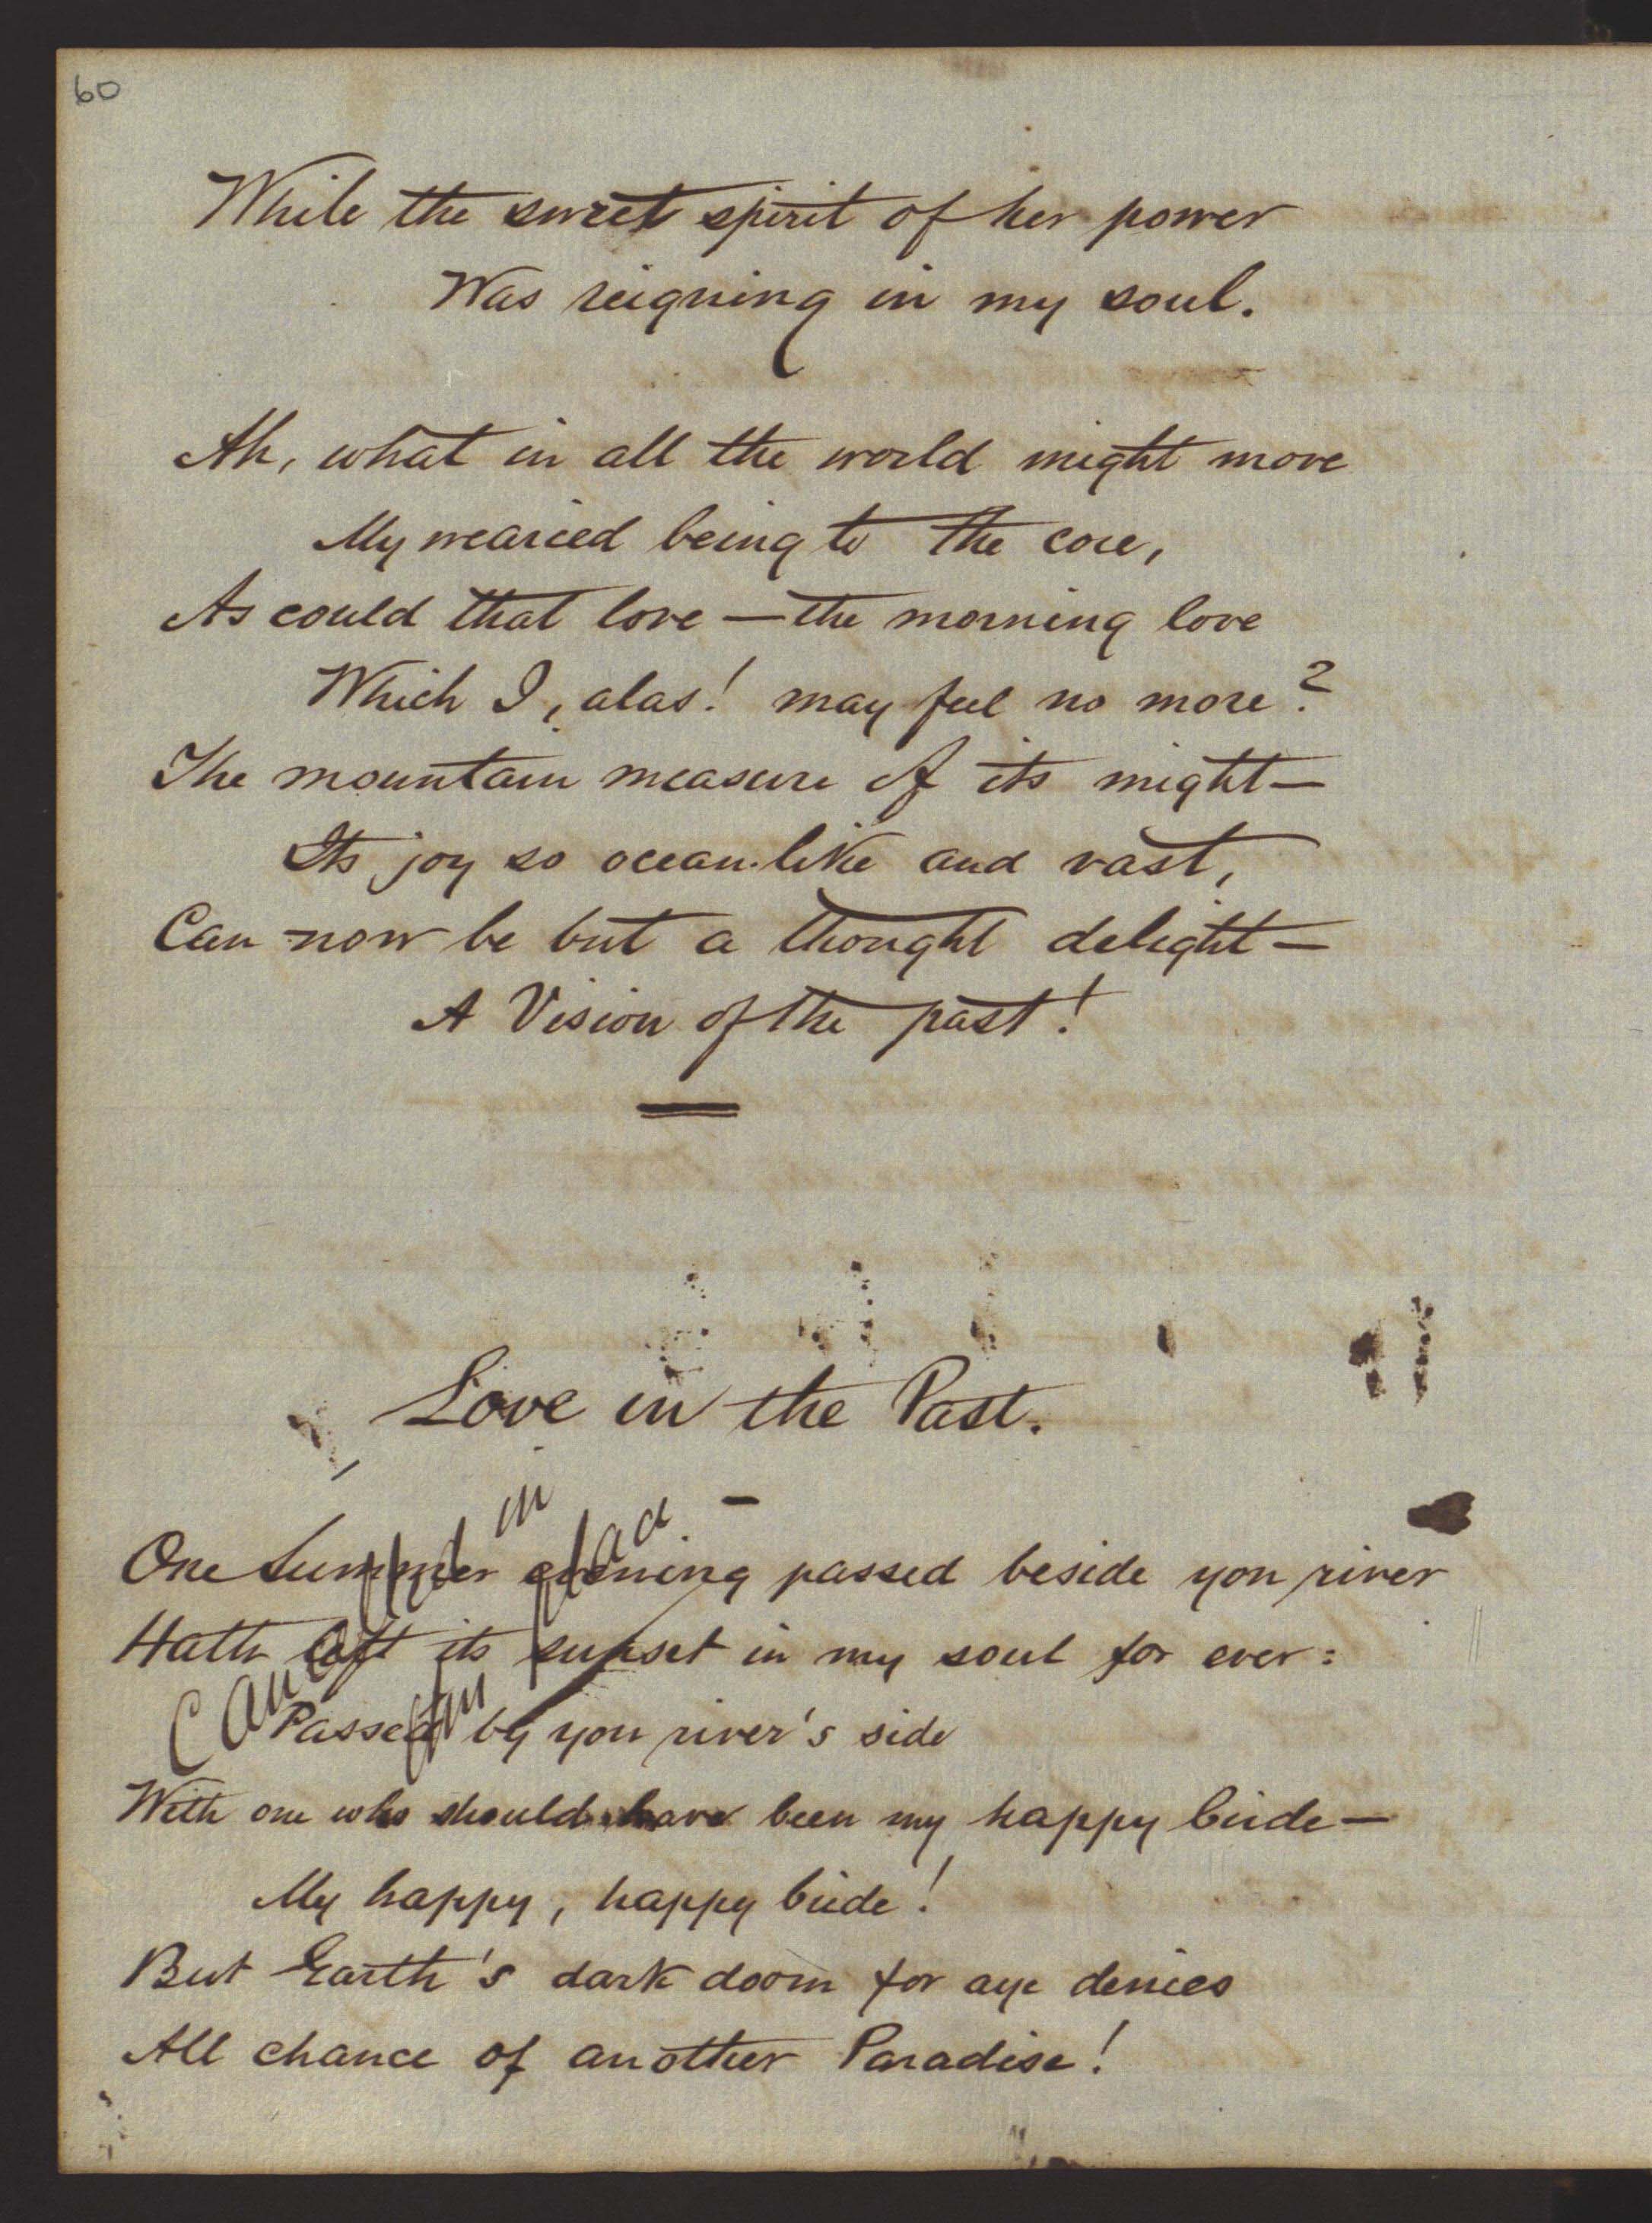 60
While the sweet spirit of her power
Was reigning in my soul.
Ah, what in all the world might move
My wearied being to the core,
As could that love — the morning love
Which I, alas! may feel no more?
The mountain measure of its might —
Its joy so ocean-like and vast,
Can now be but a thought delight —
A Vision of the past!
Love in the Past.
One Summer evening passed beside yon river
Hath left its sunset in my soul for ever:
Passed by yon river's side
With one who should have been my happy bride —
My happy, happy bride!
But Earth's dark doom for aye denies
All chance of another Paradise!
Cancelled in
place